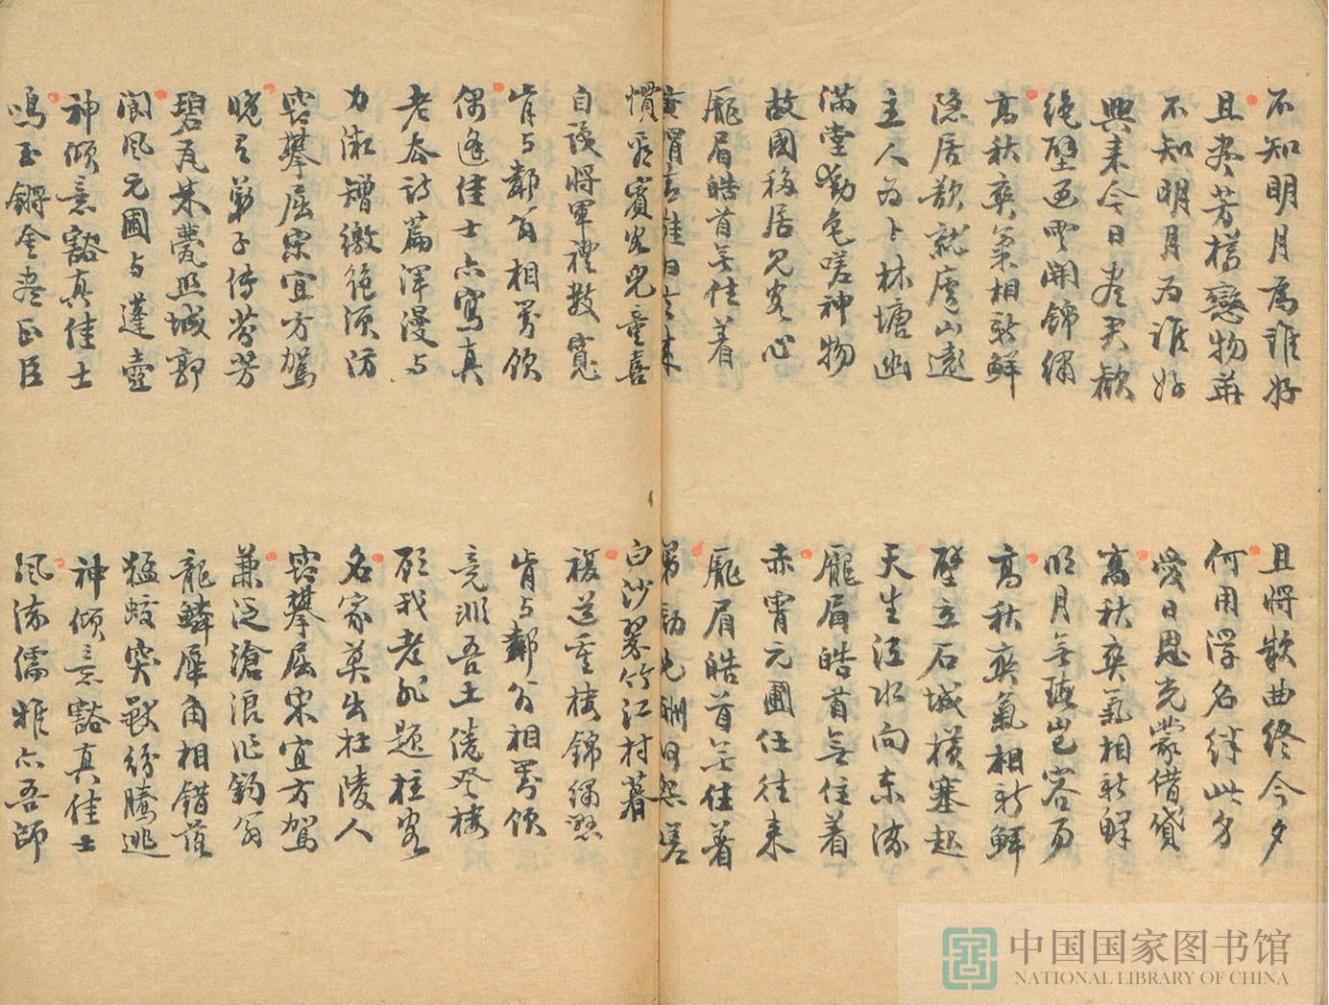 不知明月為誰好
且將款曲終今夕
且盡芳樽戀物華
何用浮名絆此身
不知明月為誰好
愛日恩光蒙借貸
興來今日盡君歡
高秋爽氣相新鮮
絕壁過雲開錦繡
明月無瑕豈容易
高秋爽氣相新鮮
高秋爽氣相新鮮
隱居欲就廬山遠
壁立石城橫塞起
主人為卜林塘幽
天生江水向東流
滿堂動色嗟神物
龐眉皓首無住著
故國移居見客心
赤霄元圃任往來
龐眉皓首無住著
龐眉皓首無住著
黃帽青鞋歸去來
弟勸兄酬何怨嗟
慣看賓客兒童喜
白沙翠竹江村暮
自識將軍禮數寬
複道重樓錦繡懸
肯与鄰翁相對飲
肯与鄰翁相對飲
偶逢佳士亦寫真
竟非吾土倦登樓
老去詩篇渾漫与
顧我老非題柱客
力矰繳絕須防
名家莫出杜陵人
竊攀屈宋宜方駕
竊攀屈宋宜方駕
晚有弟子傳芬芳
兼泛滄浪作釣翁
碧瓦朱甍照城郭
龍鱗犀角相錯落
閬風元圃与蓬壺
猛蛟突獸紛騰逃
神傾意豁真佳士
神傾意豁真佳士
鳴玉鏘金盡正臣
風流儒雅亦吾師
中国国家图书馆
NATIONAL LIBRARY OF CHINA